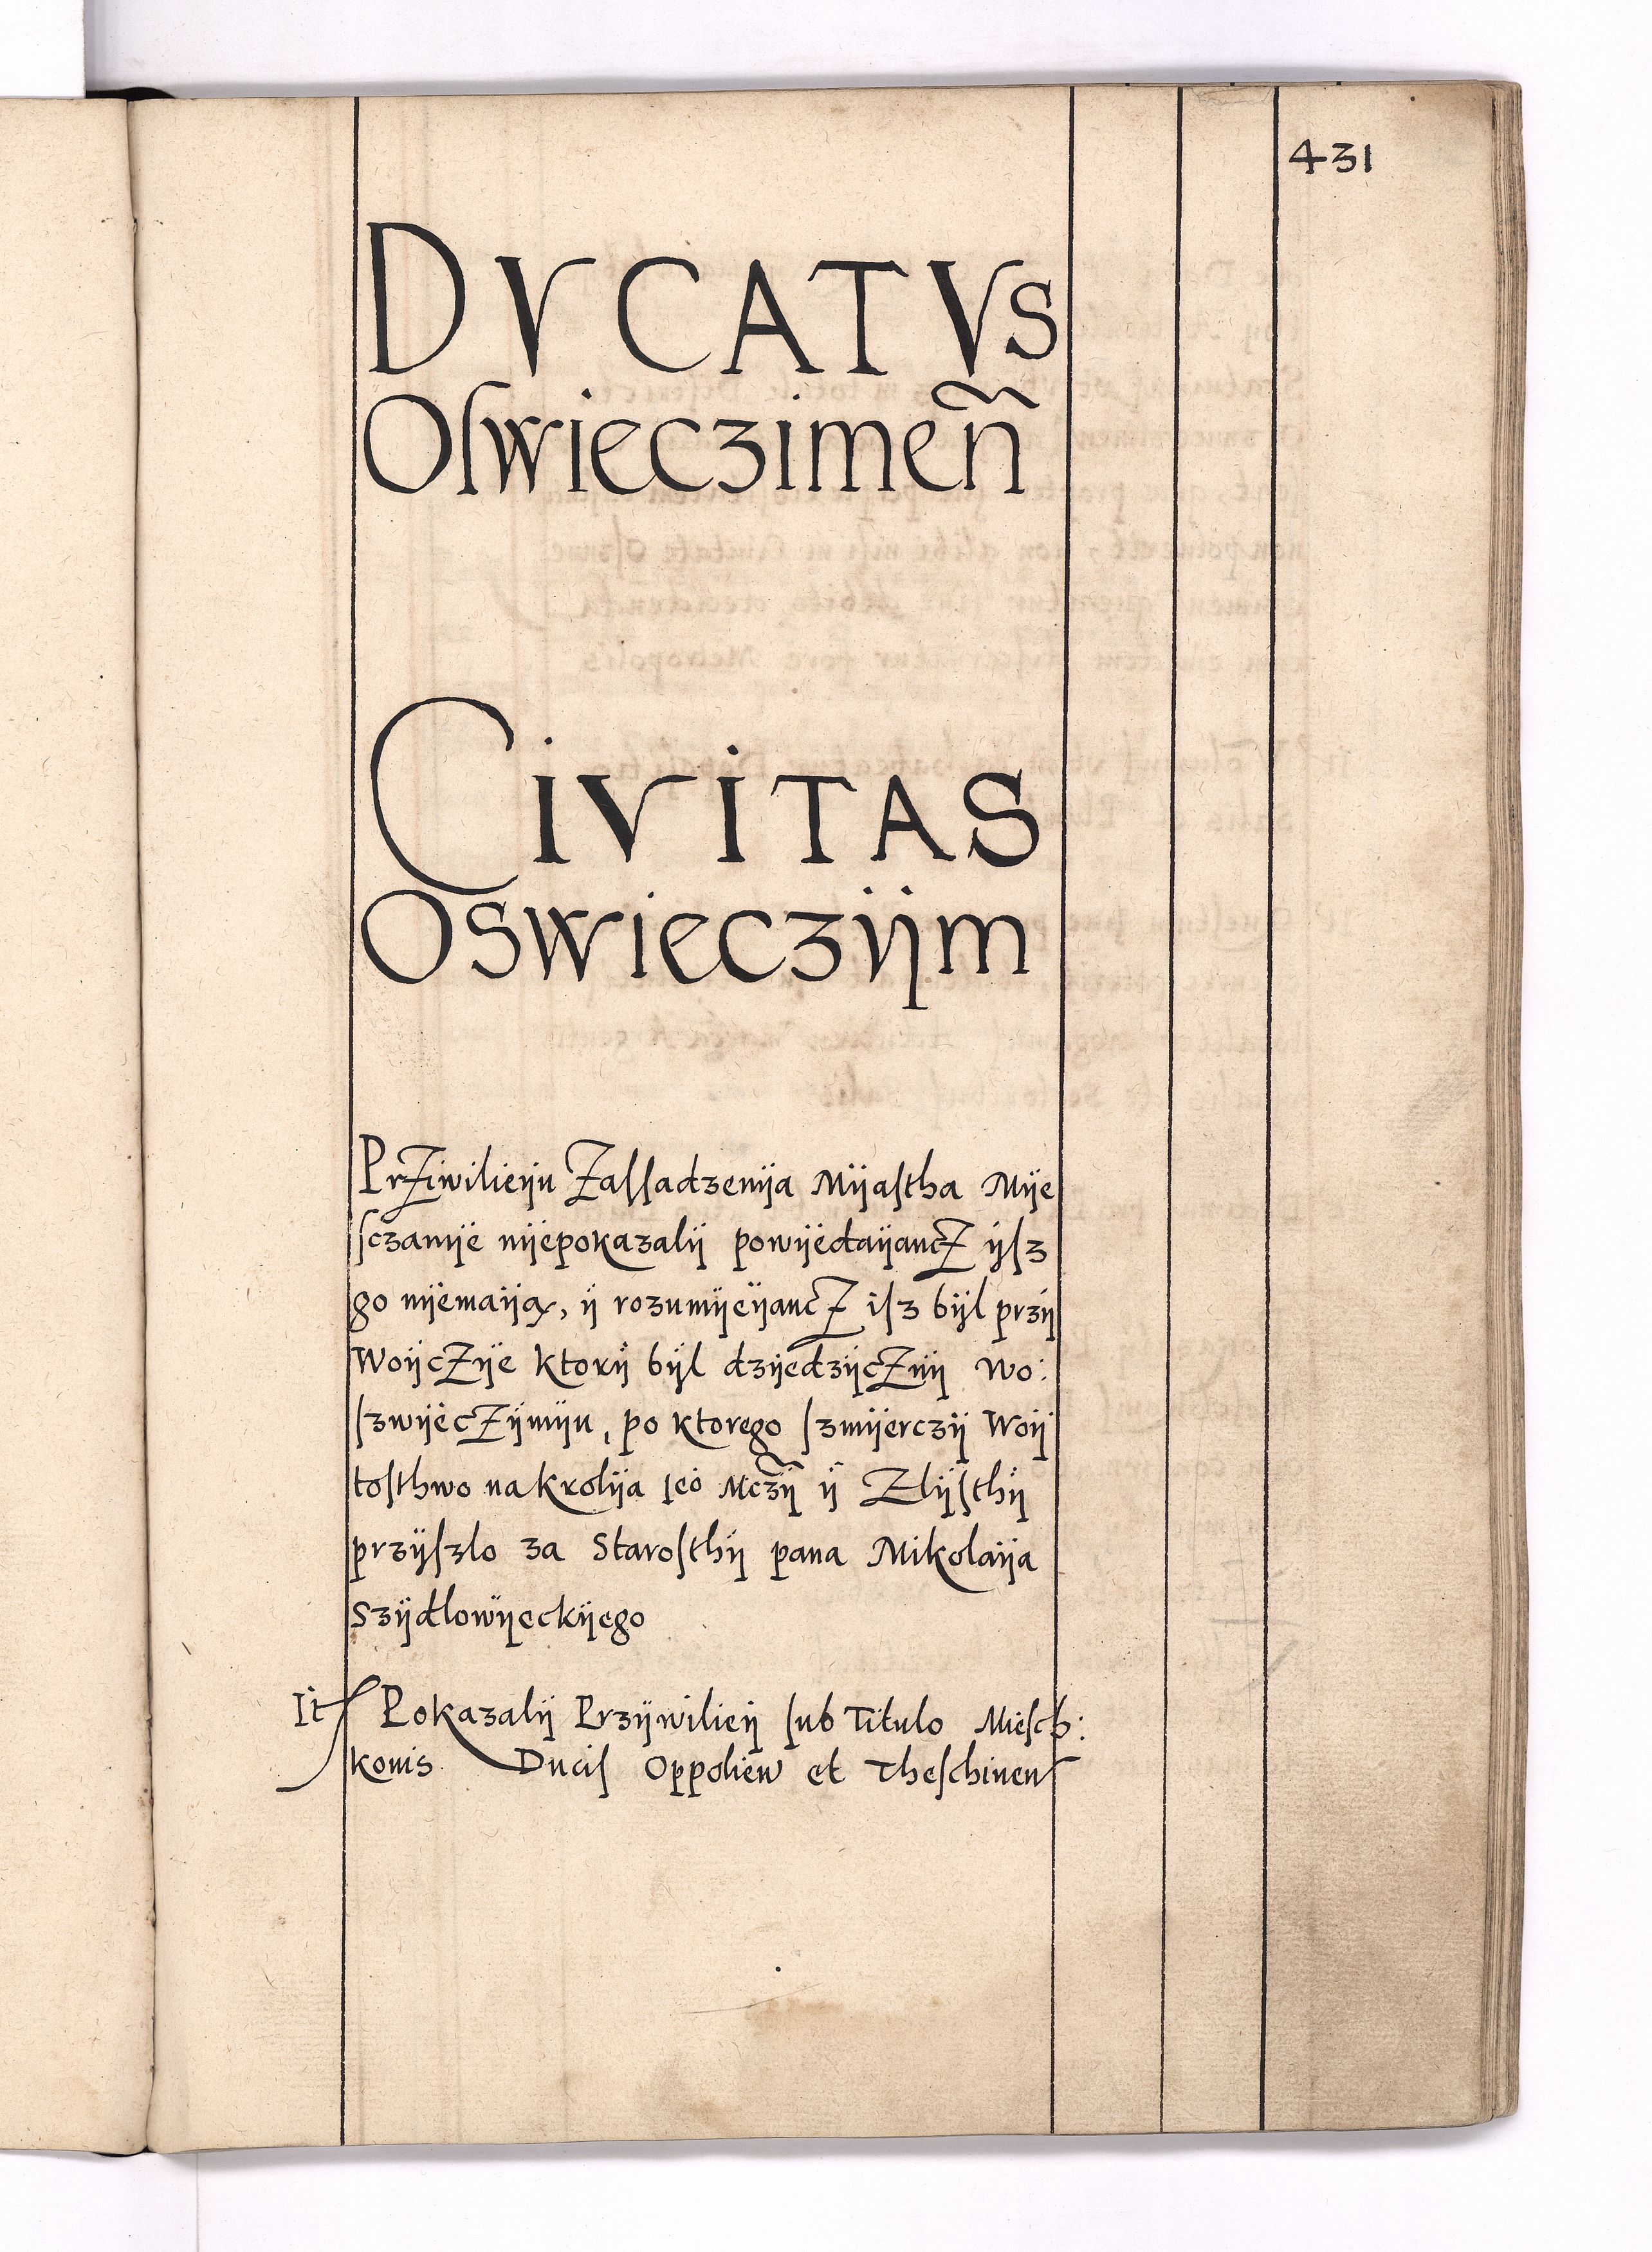 431
DVCATVS
Oſwieczimen̄
CIVITAS
OSwieczÿm
PrZiwilieÿu Zaſſadzenÿa Mÿaſtha Mÿe
ſczanÿe nÿepokazalÿ powÿedaÿancZ ÿſz
go nÿemaÿą, ÿ rozumÿeÿancZ iſz bÿl przÿ
WoÿcZÿe ktorÿ bÿl dzÿedzÿcZnÿ wo:
ſzwÿecZÿmÿu, po ktorego ſzmÿerczÿ Woÿ
toſthwo na krolÿa Ieo Mczÿ ÿ Zlÿſthÿ
przÿſzlo za Staroſthÿ pana Mikolaÿa
Szÿdlowÿeckÿego
It Pokazalÿ Przÿwilieÿ ſub Titulo Mieſch:
konis Duciſ Oppolien et Theſchinenſ